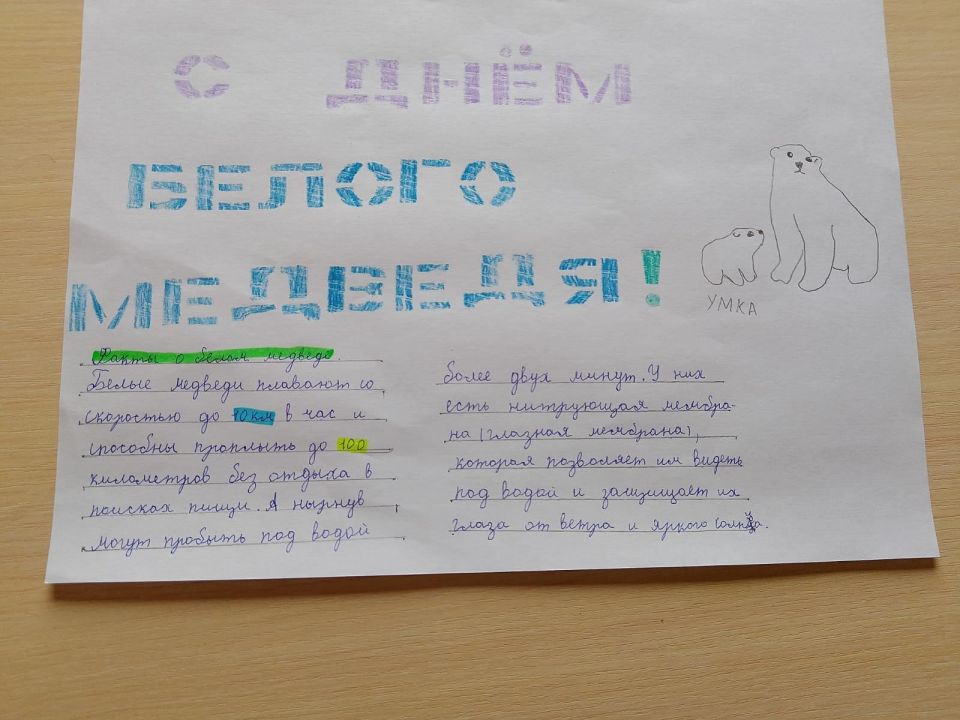 С ДНЁМ
БЕЛОГО
МЕДВЕДЯ!
УМКА
Факты о белом медведе.
Белые медведи плавают со
скоростью до 10 км в час и
способны проплыть до 100
километров без отдыха в
поисках пищи. А нырнув,
могут пробыть под водой
более двух минут. У них
есть нитрующая мембра-
на (глазная мембрана),
которая позволяет им видеть
под водой и защищает их
глаза от ветра и яркого солнца.